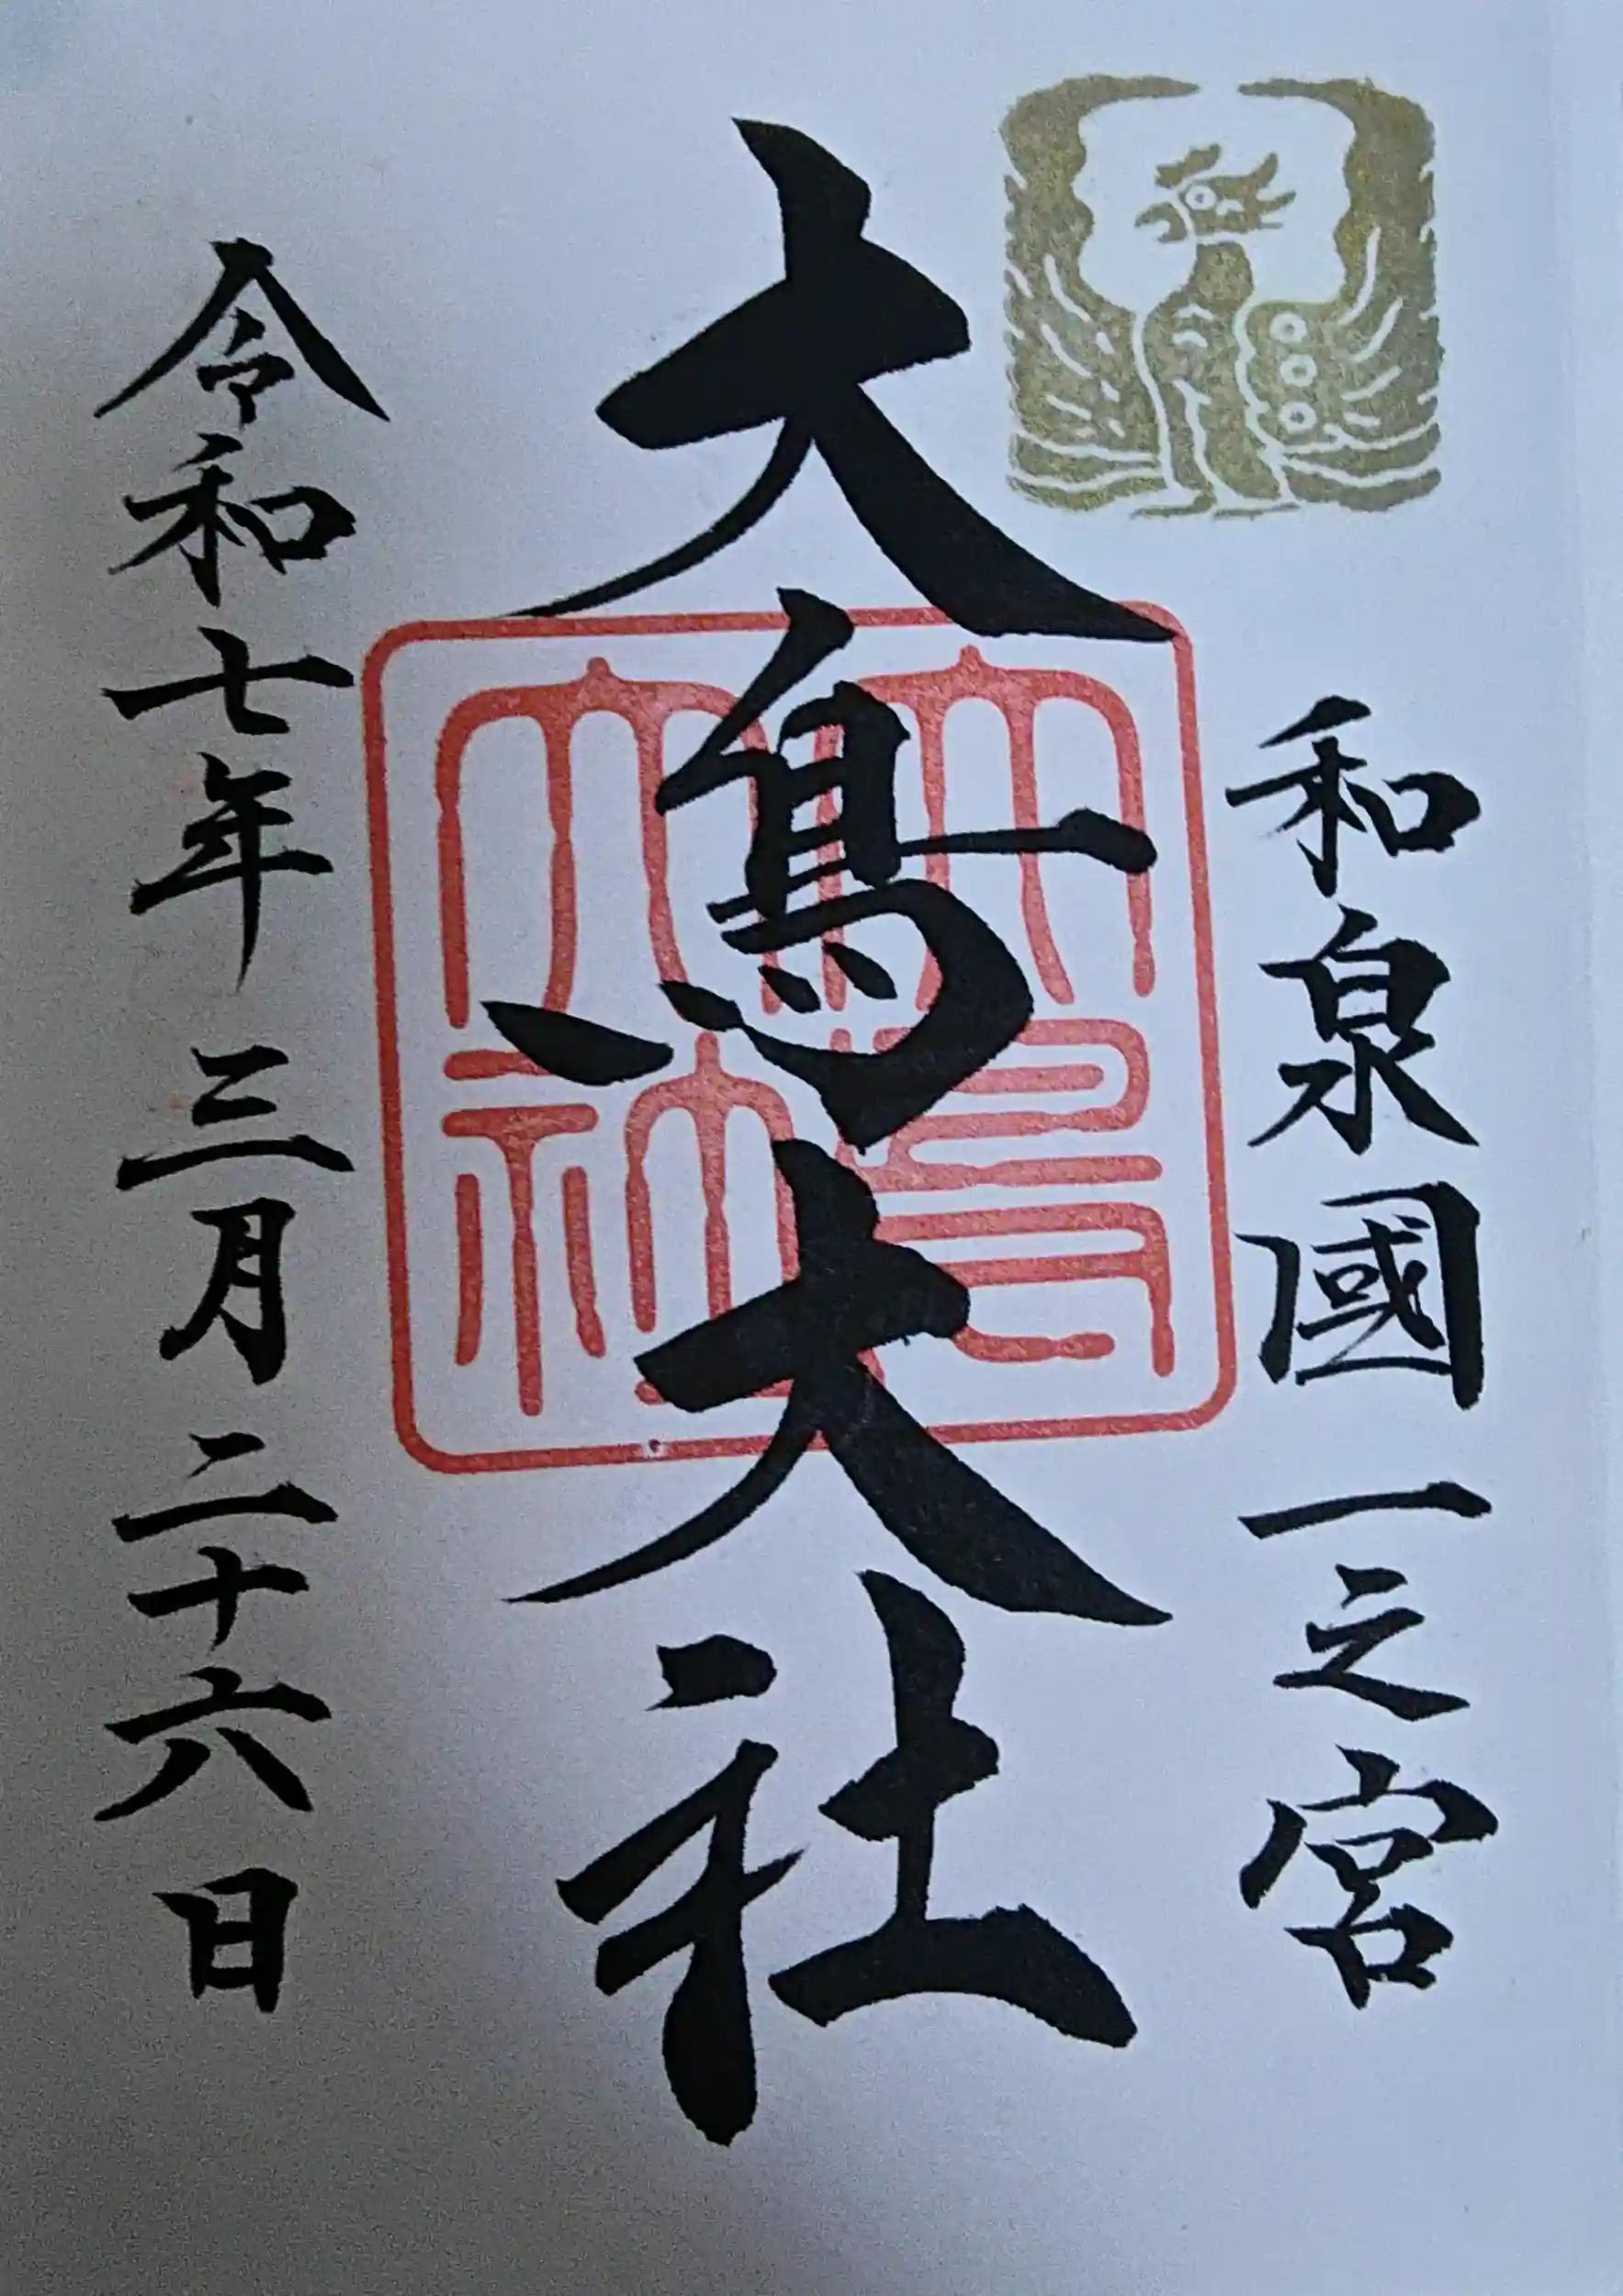 和泉國一之宮
大鳥大社
令和七年三月二十六日